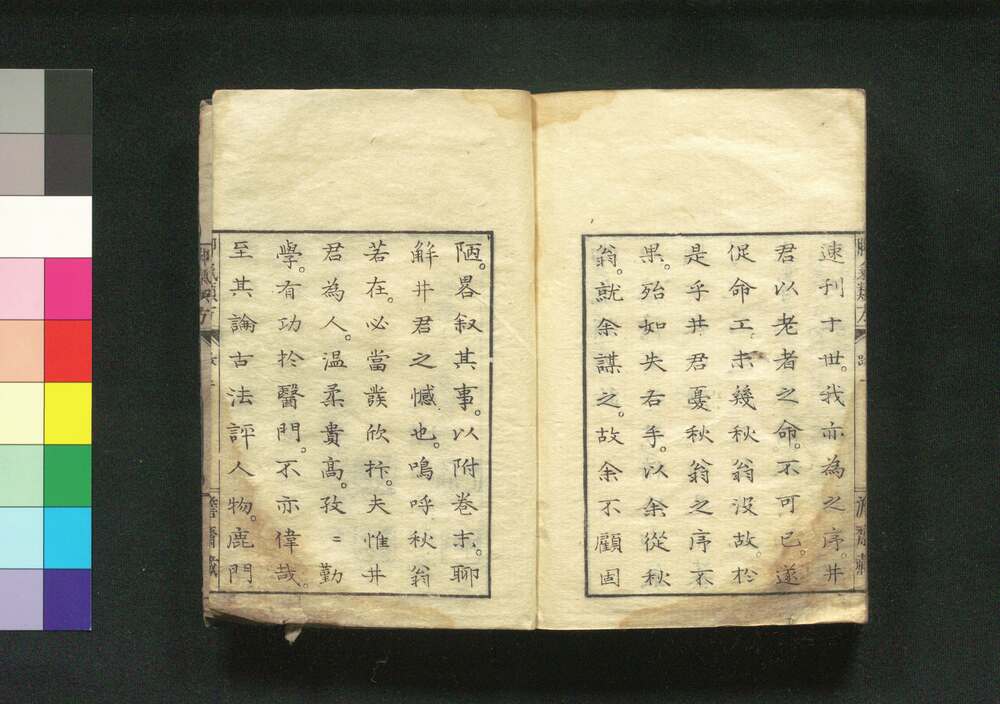 速刊于世。我亦為之序。井
君以老者之命。不可已。遂
促命工。未幾秋翁没故。於
是乎井君憂秋翁之序不
果。殆如失右手。以余從秋
翁。就余謀之。故余不顧固
陋。畧叙其事。以附巻末。聊
解井君之憾也。嗚呼秋翁
若在。必當發欣抃。夫惟井
君為人。温柔貴高。孜〻勤
學。有功於醫門。不亦偉哉。
至其論古法評人物。鹿門